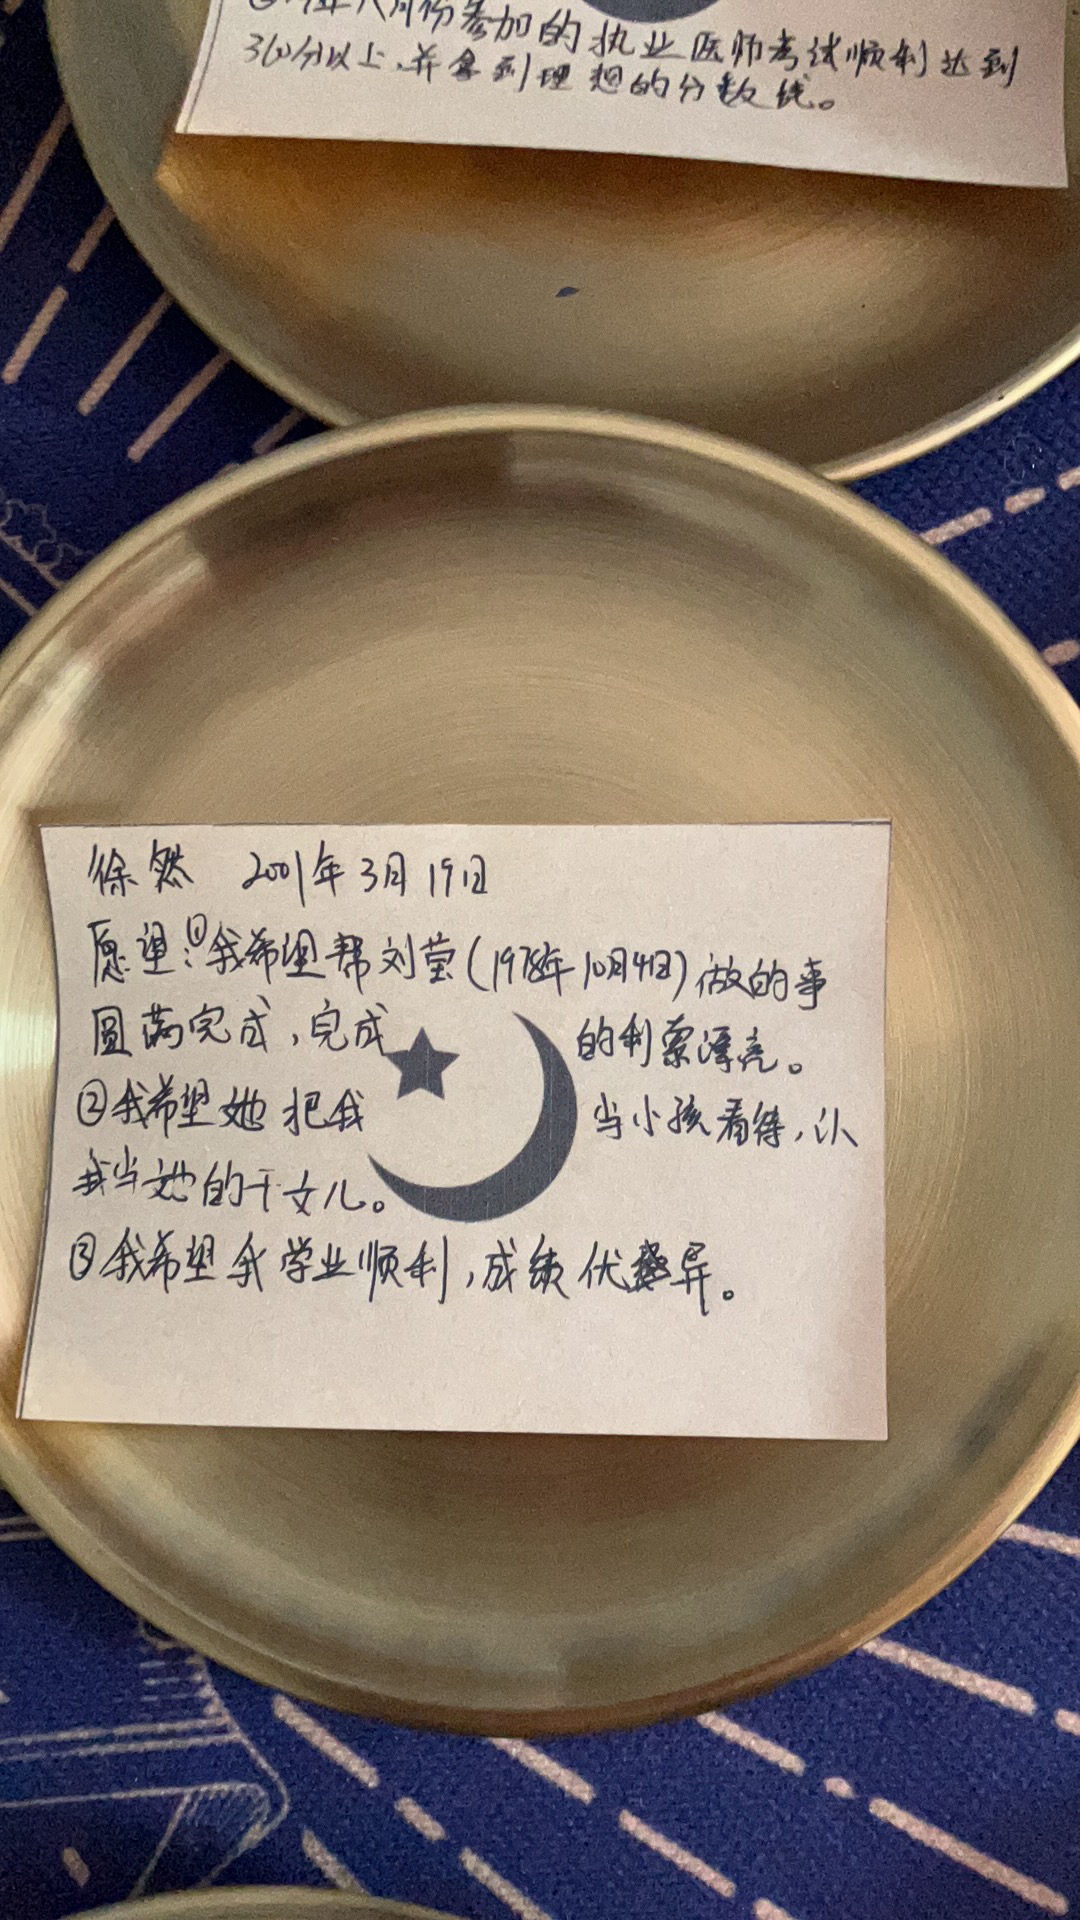 年八月份参加的执业医师考试顺利达到
360分以上,并拿到理想的分数线。
徐然 2001年3月19日
愿望:①我希望帮刘莹(1978年10月4日)做的事
圆满完成,完成的利索漂亮。
②我希望她把我当小孩看待,认
我当她的干女儿。
③我希望我学业顺利,成绩优异。